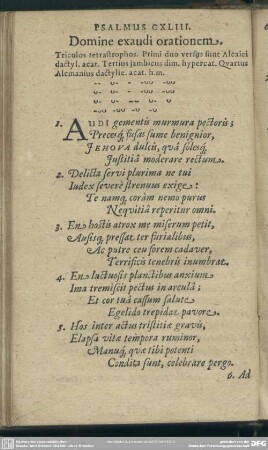 PSALMUS CXLIII.
Domine exaudi orationem.
Tricolos tetrastrophos. Primi duo versus sunt Alcaici
dactyl. acat. Tertius jambicus dim. hypercat. Qvartus
Alcmanius dactylic. acat. h.m.
1. AUDI gementis murmura pectoris;
Precesq́; fusas sume benignior,
JEHOVA dulcis, quâ solesq́;
Justitiâ moderare rectum.
2. Delicta servi plurima ne tui
Iudex severè strenuus exige:
Te namq́; coràm nemo purus
Neqvitiâ reperitur omni.
3. En hostis atrox me miserum petit,
Ausisq́; pressat ter furialibus,
Ac putre ceu forem cadaver,
Terrificis tenebris inumbrat.
4. En luctuosis planctibus anxium
Ima tremiscit pectus in arculâ;
Et cor tuâ cassum salute
Egelido trepidat pavore.
5. Hos inter actus tristitiæ gravis,
Elapsa vitæ tempora ruminor,
Manuq́; quæ tibi potenti
Condita sunt, celebrare pergo.
6. Ad